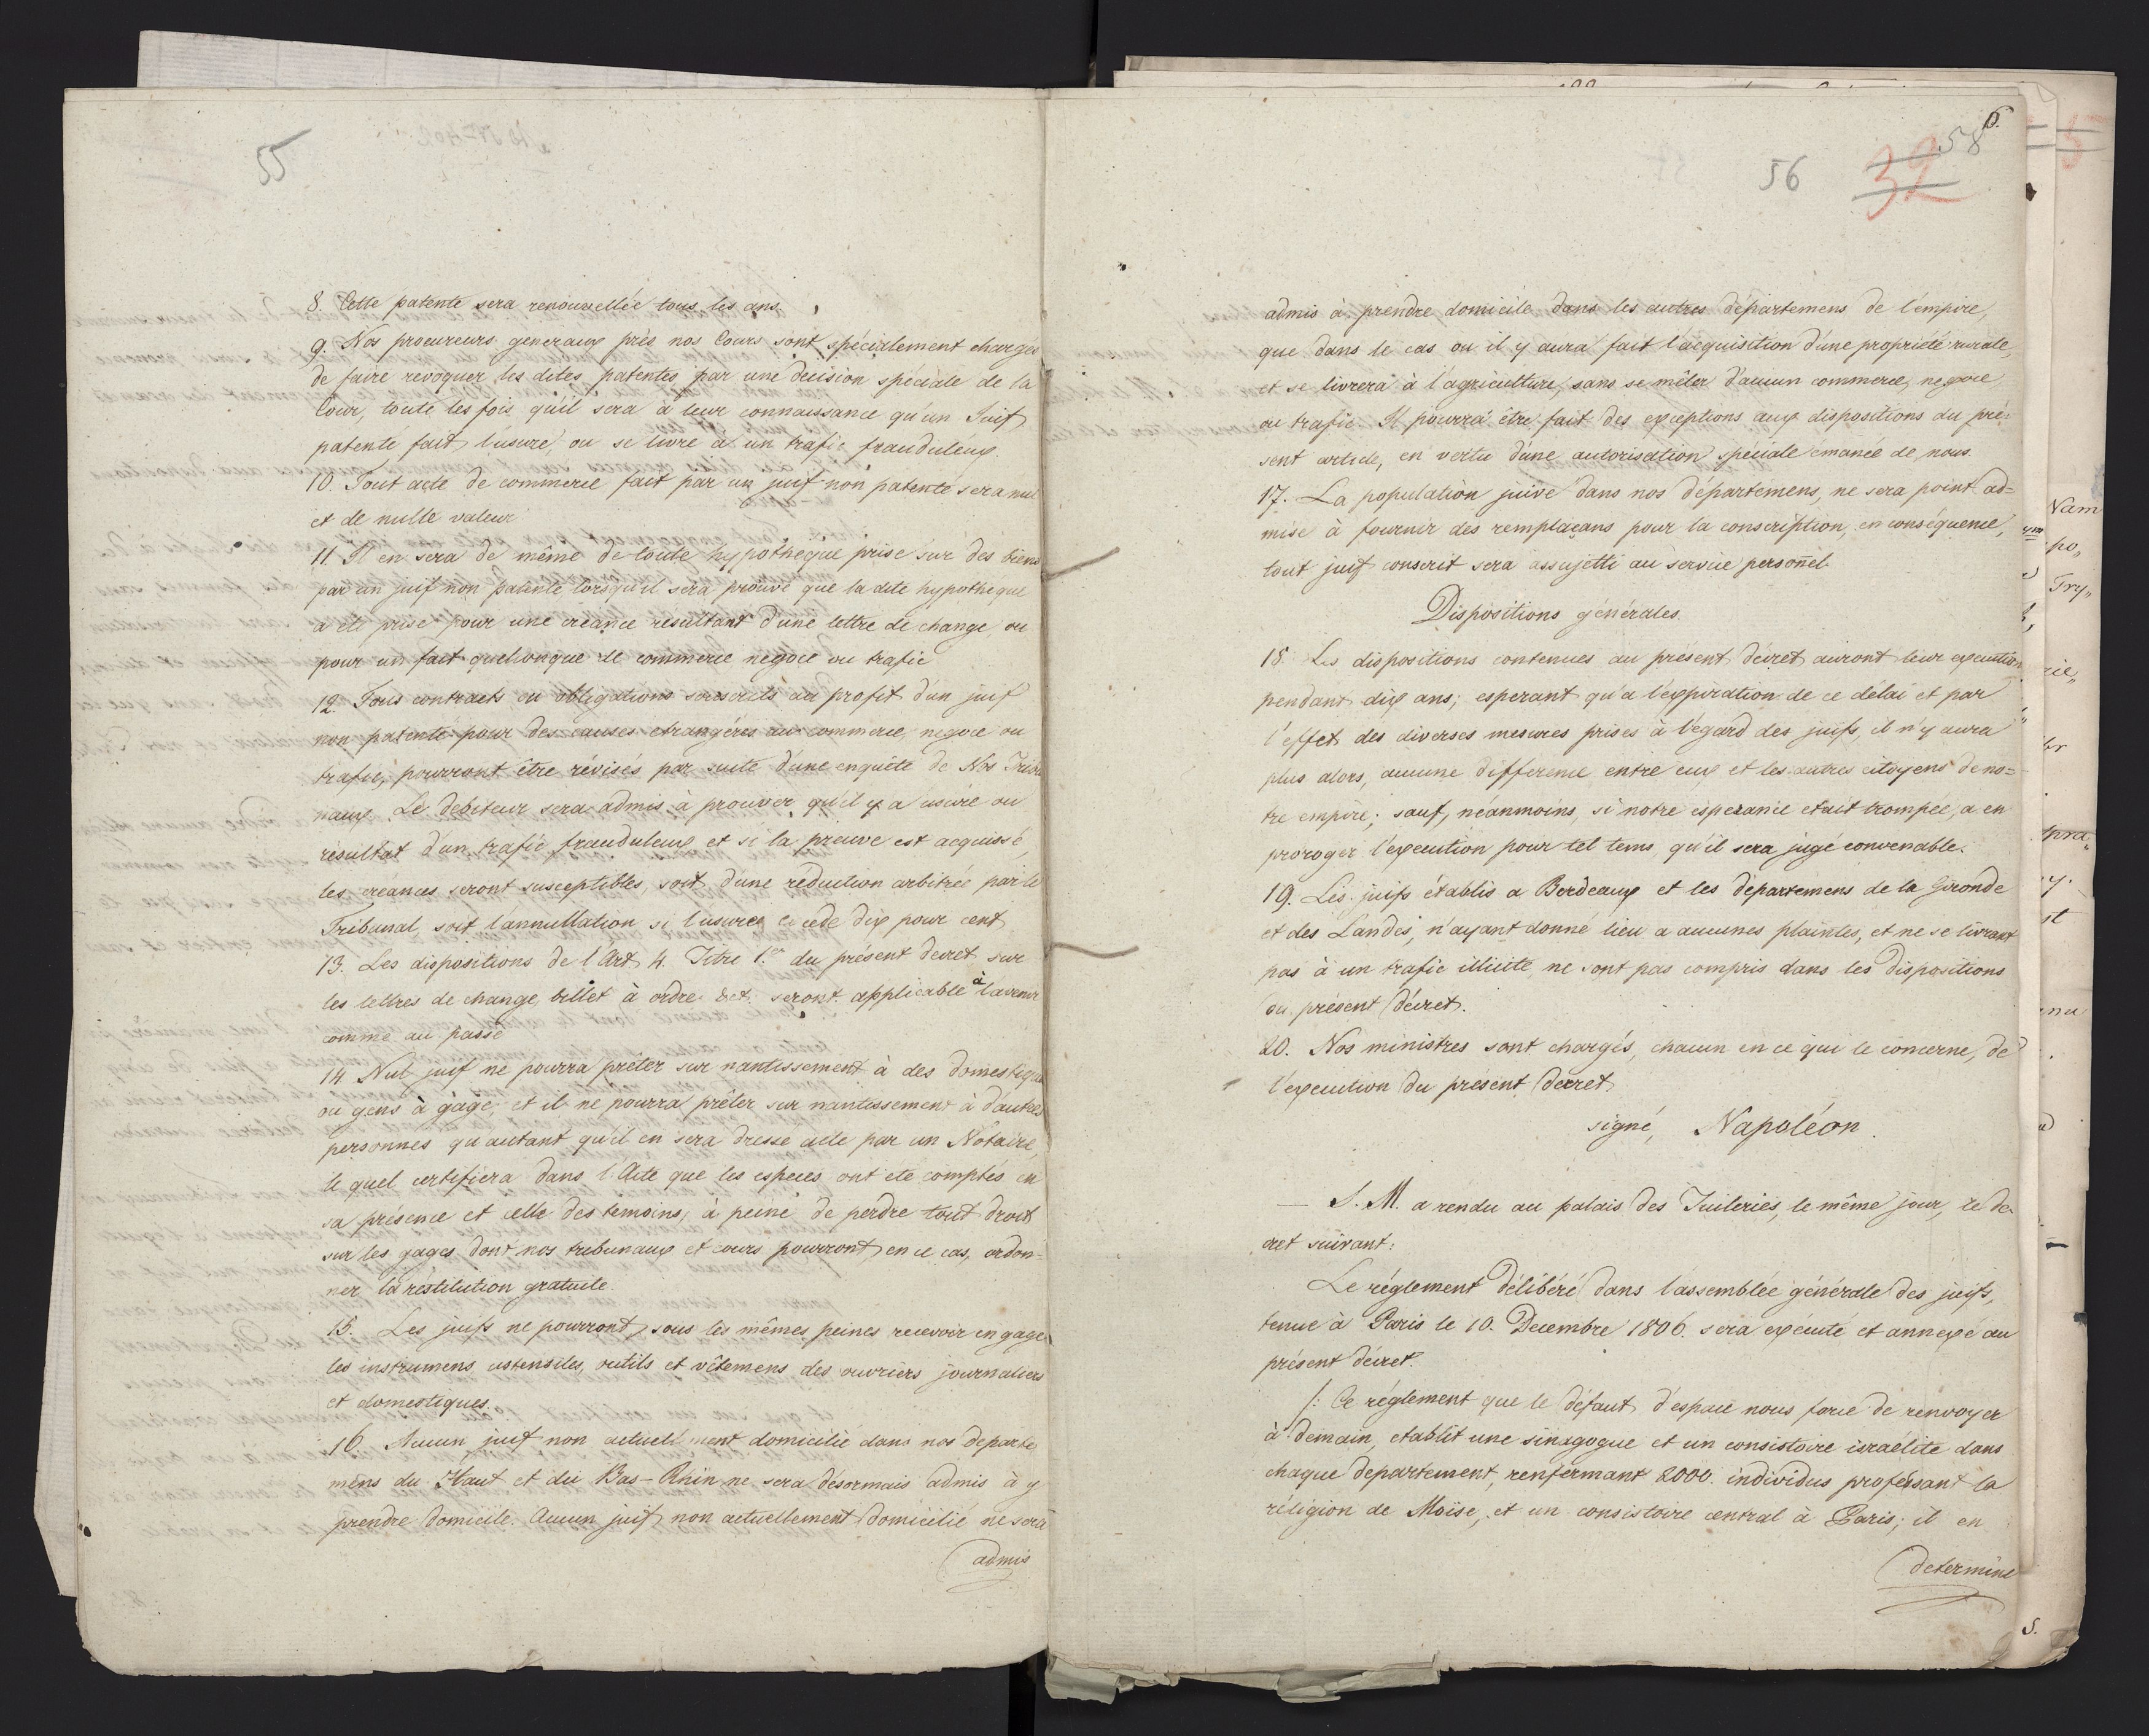 55
8. Cette patente sera renouvellée tous les ans.
9. Nos procureurs generaux près nos Cours sont spécialement charges
de faire revoquer les dites patentes par une decision spéciale de la
Cour, toute les fois qu'il sera à leur connaissance qu'un Juif
patenté fait l'usure, ou se livre à un trafic frauduleux.
10. Tout acte de commerce fait par un juif non patenté sera nul
et de nulle valeur
11. Il en sera de même de toute hypothèque prise sur des biens
par un juif non patenté lorsqu'il sera prouvé que la dite hypotheque
a été prise pour une créance résultant d'une lettre de change, ou
pour un fait quelconque de commerce negoce ou trafic
12. Tous contracts ou obligations souscrits au profit d'un juif
non patenté pour des causes etrangéres au commerce, negoce ou
trafic, pourront être révisés par suite d'une enquête de Nos Tribu
naux. Le debiteur sera admis à prouver qu'il y a usure ou
résultat d'un trafic frauduleux et si la preuve est acquisse,
les creances seront susceptibles, soit d'une reduction arbitrée par le
Tribunal, soit l'annullation si l'usure excede dix pour cent
13. Les dispositions de l'Art 4. Titre 1.er du présent decret sur
les lettres de change, billet à ordre &ct. seront applicable à l'avenir
comme au passé
14 Nul juif ne pourra prêter sur nantissement à des domestique
ou gens à gage, et il ne pourra prêter sur nantissement à d'autres
personnes qu'autant qu'il en sera dresse acte par un Notaire,
le quel certifiera dans l'Acte que les especes ont ete comptés en
sa présence et celle des temoins, à peine de perdre tout droit
sur les gages dont nos tribunaux et cours pourront, en ce cas, ordon-
ner la restitution gratuite.
15. Les juifs ne pourront, sous les mêmes peines recevoir en gage
les instrumens, ustensiles, outils et vêtemens des ouvriers journaliers
et domestiques.
16. Aucun juif non actuellement domicilié dans nos departe
mens du Haut et du Bas-Rhin ne sera désormais admis à y
prendre domicile. Aucun juif non actuellement domicilié ne sera
admis
6.
58
56
32
admis à prendre domicile dans les autres départemens de l'empire,
que dans le cas ou il y aura fait l'acquisition d'une propriété rurale,
et se livrera à l'agriculture, sans se mêler d'aucun commerce, negoce
ou trafic. Il pourra être fait des exceptions aux dispositions du pré-
sent article, en vertu d'une autorisation spéciale emanée de nous.
17. La population juive dans nos départemens, ne sera point ad=
mise à fournir des remplaçans pour la conscription, en conséquence,
tout juif conscrit sera assujetti au service personel.
Dispositions générales.
18. Les dispositions contenues au présent décret auront leur execution
pendant dix ans; esperant qu'a l'expiration de ce délai et par
l'effet des diverses mesures prises à l'egard des juifs, il n'y aura
plus alors, aucune difference entre eux et les autres citoyens de no=
tre empire; sauf, néanmoins, si notre esperance etait trompée, a en
proroger l'execution pour tel tems, qu'il sera jugé convenable.
19. Les juifs établis a Bordeaux et les departemens de la Gironde
et des Landes, n'ayant donné lieu a aucunes plaintes, et ne se livrant
pas à un trafic illicite, ne sont pas compris dans les dispositions
du présent décret.
20. Nos ministres sont chargés, chacun en ce qui le concerne, de
l'execution du présent decret
signé, Napoléon.
— S. M. a rendu au palais des Tuileries, le même jour, le de-
cret suivant:
Le réglement délibéré dans l'assemblée générale des juifs,
tenue à Paris le 10. Decembre 1806. sera exécuté et annexé au
présent décret.
/: Ce réglement que le défaut d'espace nous force de renvoyer
à demain, etablit une sinagogue et un consistoire israélite dans
chaque departement, renfermant 2000. individus professant la
réligion de Moïse, et un consistoire central à Paris; il en
determine
Nam
po,,
Try,,